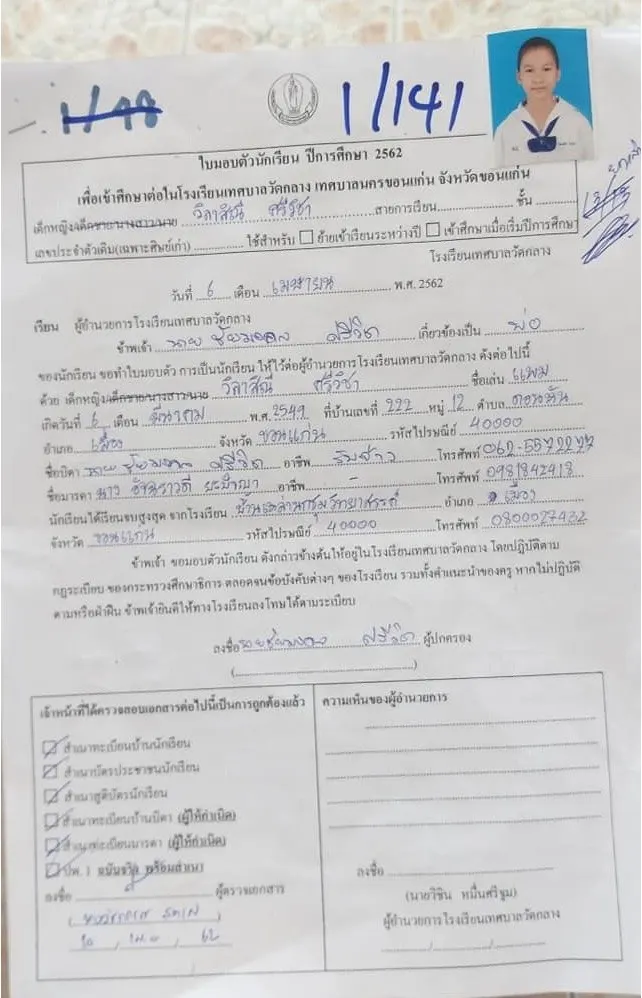 1/48
1/141
ใบมอบตัวนักเรียน ปีการศึกษา 2562
เพื่อเข้าศึกษาต่อในโรงเรียนเทศบาลวัดกลาง เทศบาลนครขอนแก่น จังหวัดขอนแก่น
เด็กหญิง/เด็กชาย/นางสาว/นาย วิลาสิณี ศรีวิชา สายการเรียน ชั้น
เลขประจำตัวเดิม(เฉพาะศิษย์เก่า) ใช้สำหรับ ย้ายเข้าเรียนระหว่างปี เข้าศึกษาเมื่อเริ่มปีการศึกษา
โรงเรียนเทศบาลวัดกลาง
วันที่ 6 เดือน เมษายน พ.ศ. 2562
เรียน ผู้อำนวยการโรงเรียนเทศบาลวัดกลาง
ข้าพเจ้า นาย เกี่ยวข้องเป็น พ่อ
ของนักเรียน ขอทำใบมอบตัว การเป็นนักเรียน ให้ไว้ต่อผู้อำนวยการโรงเรียนเทศบาลวัดกลาง ดังต่อไปนี้
ด้วย เด็กหญิง/เด็กชาย/นางสาว/นาย วิลาสิณี ศรีวิชา ชื่อเล่น แพม
เกิดวันที่ 6 เดือน มีนาคม พ.ศ. 2549 ที่บ้านเลขที่ 222 หมู่ 12 ตำบล ดอนหัน
อำเภอ เมือง จังหวัด ขอนแก่น รหัสไปรษณีย์ 40000
ชื่อบิดา นาย อาชีพ รับจ้าง โทรศัพท์
ชื่อมารดา นาง อาชีพ - โทรศัพท์ 0981842418
นักเรียนได้เรียนจบสูงสุด จากโรงเรียน อำเภอ เมือง
จังหวัด ขอนแก่น รหัสไปรษณีย์ 40000 โทรศัพท์ 0800027432
ข้าพเจ้า ขอมอบตัวนักเรียน ดังกล่าวข้างต้นให้อยู่ในโรงเรียนเทศบาลวัดกลาง โดยปฏิบัติตาม
กฎระเบียบ ของกระทรวงศึกษาธิการ ตลอดจนข้อบังคับต่างๆ ของโรงเรียน รวมทั้งคำแนะนำของครู หากไม่ปฏิบัติ
ตามหรือฝ่าฝืน ข้าพเจ้ายินดีให้ทางโรงเรียนลงโทษได้ตามระเบียบ
ลงชื่อ ผู้ปกครอง
เจ้าหน้าที่ได้ตรวจสอบเอกสารต่อไปนี้เป็นการถูกต้องแล้ว
สำเนาทะเบียนบ้านนักเรียน
สำเนาบัตรประชาชนนักเรียน
สำเนาสูติบัตรนักเรียน
สำเนาทะเบียนบ้านบิดา (ผู้ให้กำเนิด)
สำเนาทะเบียนมารดา (ผู้ให้กำเนิด)
ปพ. 1 ฉบับจริง พร้อมสำเนา
ลงชื่อ ผู้ตรวจเอกสาร
ความเห็นของผู้อำนวยการ
ลงชื่อ
(นายวิชิน หมื่นศรีชูม)
ผู้อำนวยการโรงเรียนเทศบาลวัดกลาง